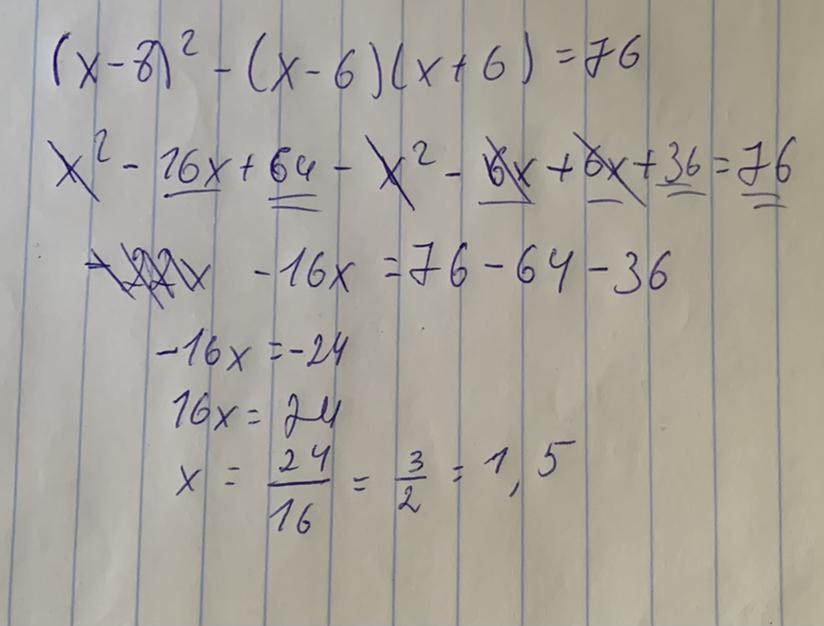 (x-8)² - (x-6)(x+6) = 76
x² - 16x + 64 - x² - 6x + 6x + 36 = 76
-22x -16x = 76 - 64 - 36
-16x = -24
16x = 24
x = 24/16 = 3/2 = 1,5